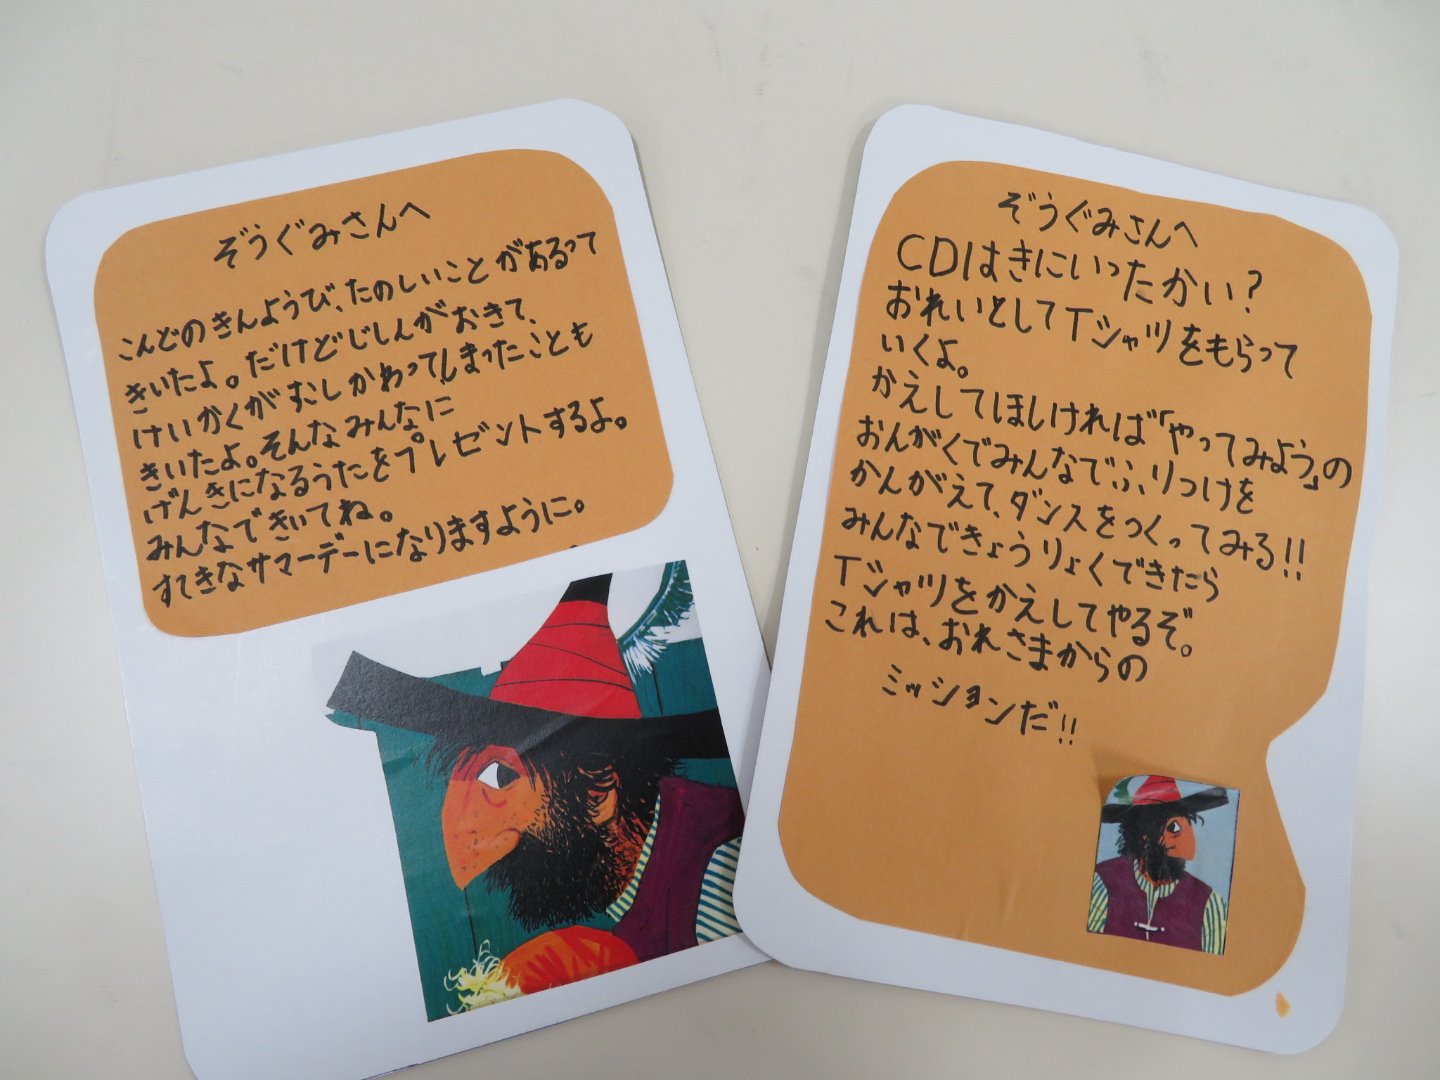 ぞうぐみさんへ
こんどのきんようび、たのしいことがあるって
きいたよ。だけどじしんがおきて、
けいかくがすこしかわってしまったことも
きいたよ。そんなみんなに
げんきになるうたをプレゼントするよ。
みんなできいてね。
すてきなサマーデーになりますように。
ぞうぐみさんへ
CDはきにいったかい?
おれいとしてTシャツをもらって
いくよ。
かえしてほしければ「やってみよう」の
おんがくでみんなでふりつけを
かんがえて、ダンスをつくってみろ!!
みんなできょうりょくできたら
Tシャツをかえしてやるぞ。
これは、おれさまからの
ミッションだ!!